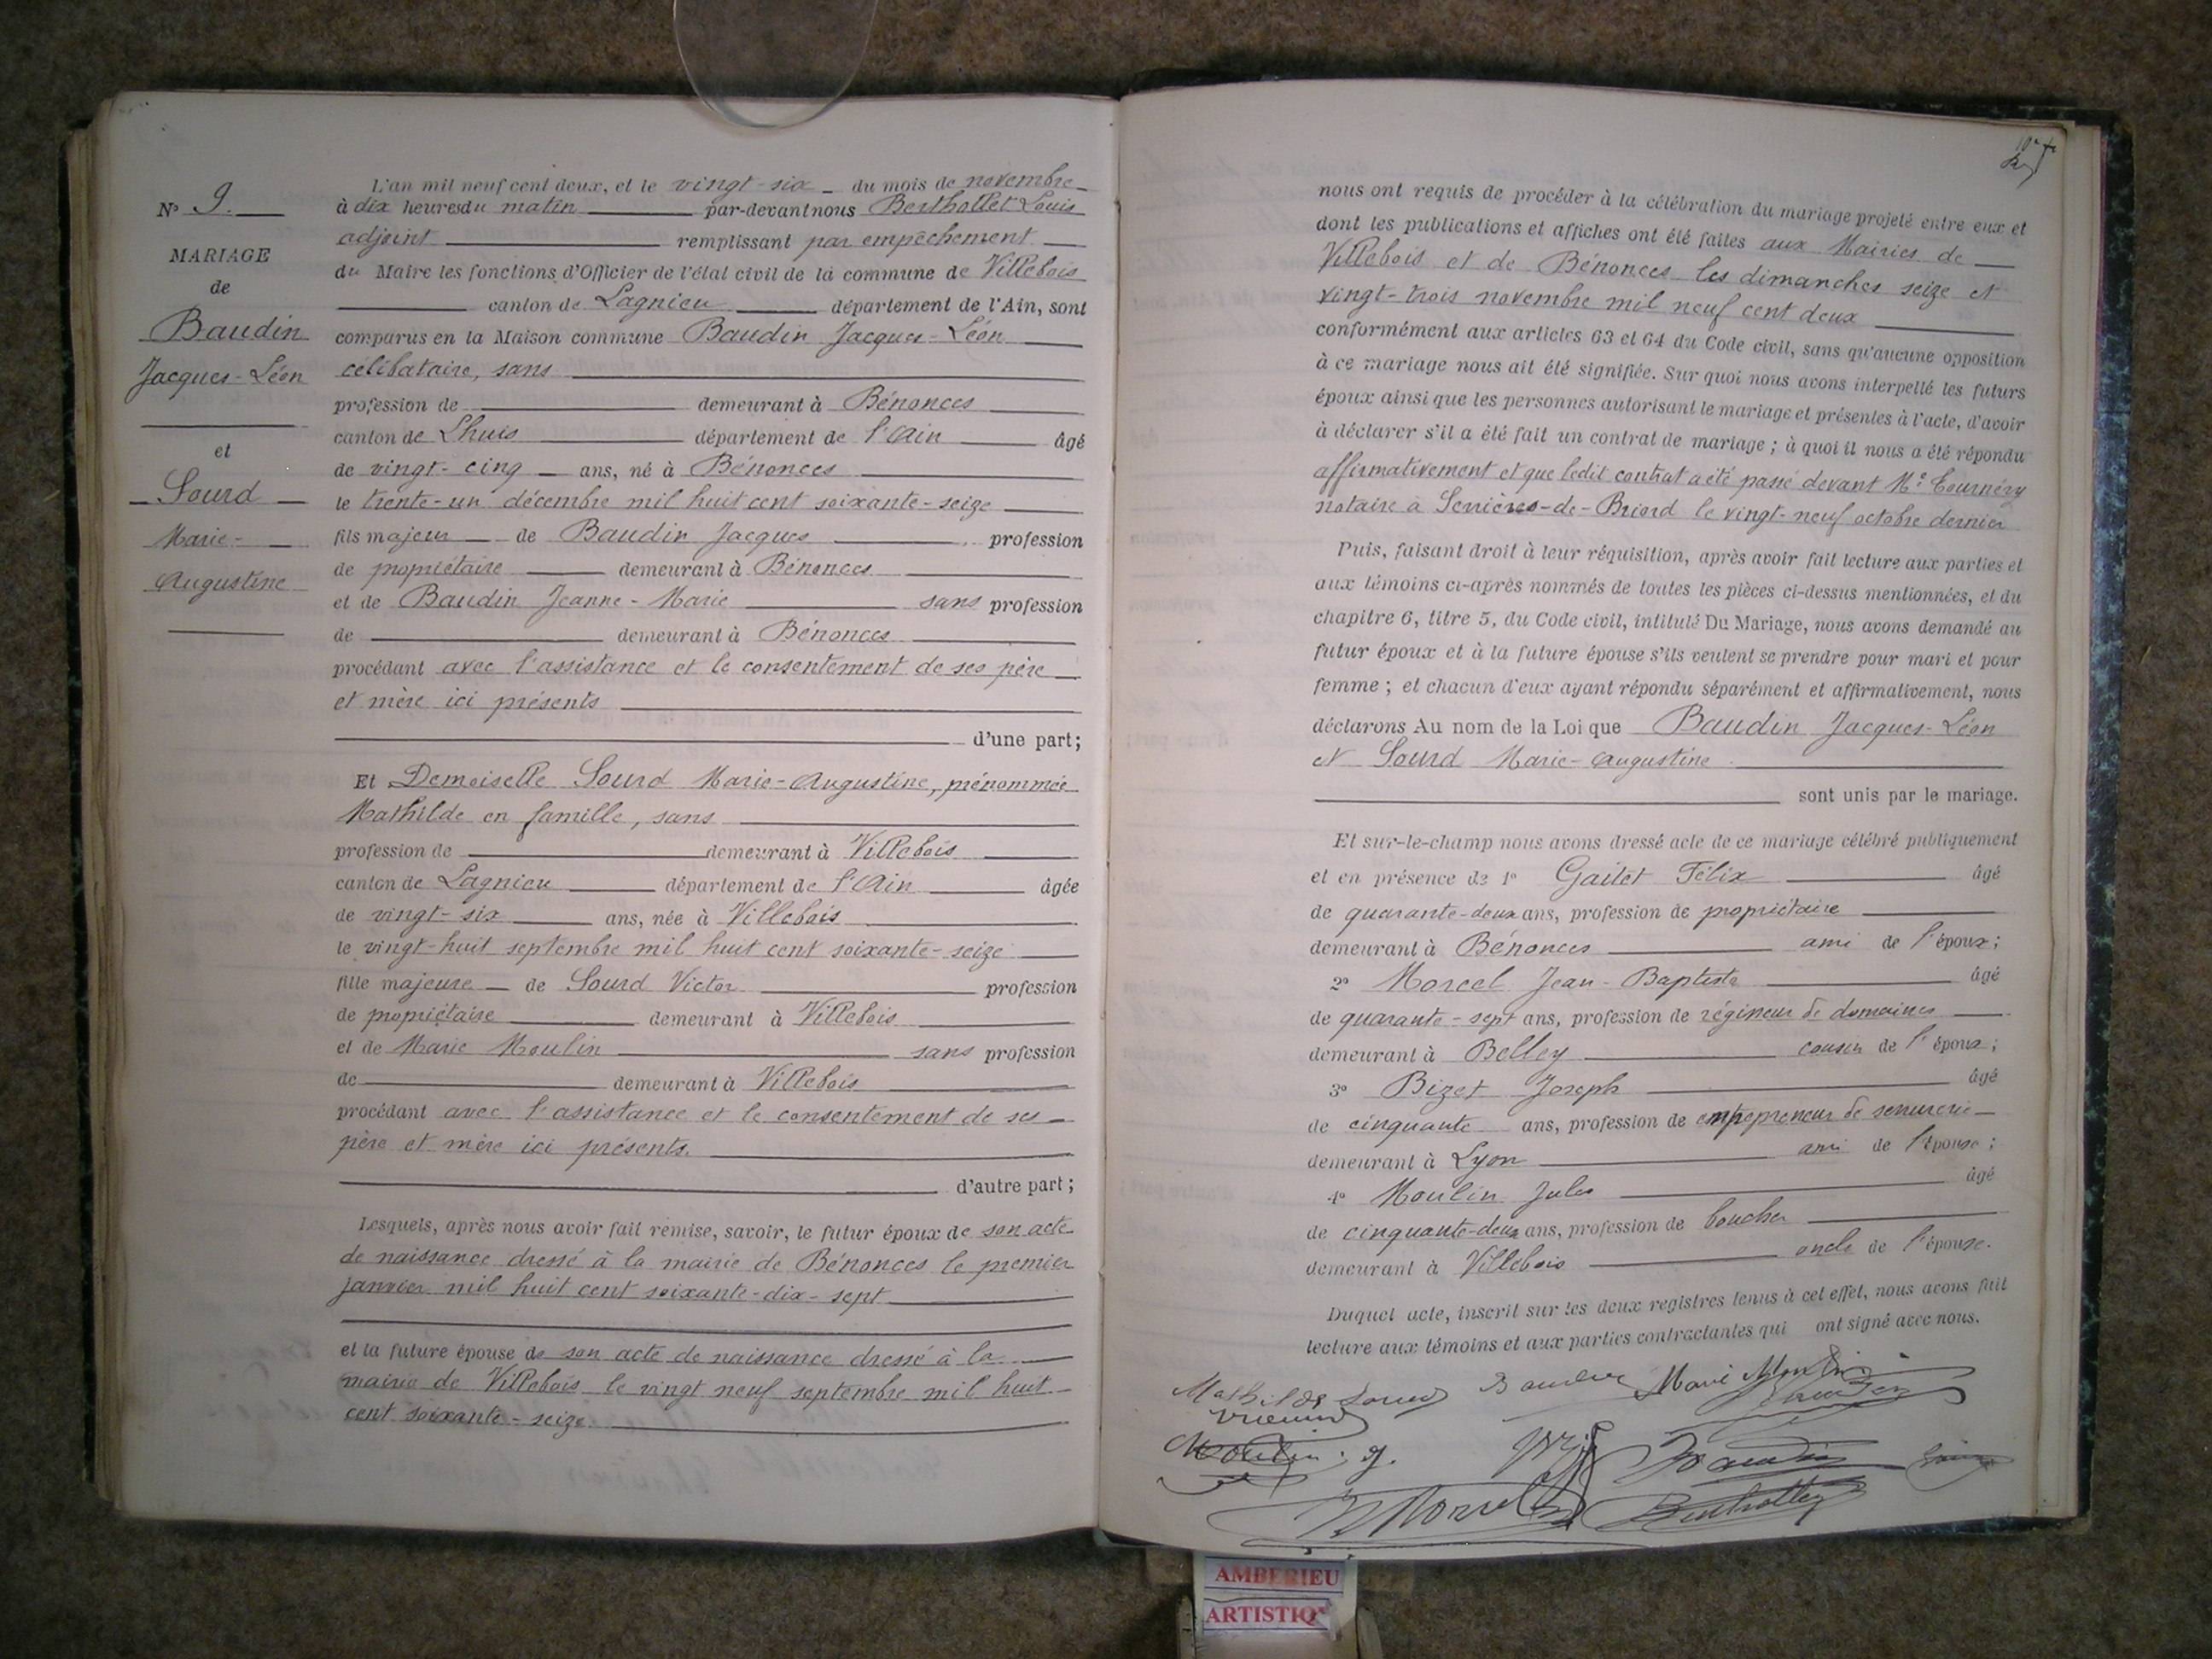 N° 9.
MARIAGE
de
Baudin
Jacques-Léon
et
Sourd
Marie-
Augustine
L'an mil neuf cent deux, et le vingt-six du mois de novembre
à dix heures du matin par-devant nous Berthollet Louis
adjoint remplissant par empêchement
du Maire les fonctions d'Officier de l'état civil de la commune de Villebois
canton de Lagnieu département de l'Ain, sont
comparus en la Maison commune Baudin Jacques-Léon
célibataire, sans
profession de demeurant à Bénonces
canton de Lhuis département de l'Ain âgé
de vingt-cinq ans, né à Bénonces
le trente-un décembre mil huit cent soixante-seize
fils majeur de Baudin Jacques profession
de propriétaire demeurant à Bénonces
et de Baudin Jeanne-Marie sans profession
de demeurant à Bénonces
procédant avec l'assistance et le consentement de ses père
et mère ici présents
d'une part;
Et Demoiselle Sourd Marie-Augustine, prénommée
Mathilde en famille, sans
profession de demeurant à Villebois
canton de Lagnieu département de l'Ain âgée
de vingt-six ans, née à Villebois
le vingt-huit septembre mil huit cent soixante-seize
fille majeure de Sourd Victor profession
de propriétaire demeurant à Villebois
et de Marie Moulin sans profession
de demeurant à Villebois
procédant avec l'assistance et le consentement de ses
père et mère ici présents.
d'autre part;
Lesquels, après nous avoir fait remise, savoir, le futur époux de son acte
de naissance dressé à la mairie de Bénonces le premier
janvier mil huit cent soixante-dix-sept
et la future épouse de son acte de naissance dressé à la
mairie de Villebois le vingt neuf septembre mil huit
cent soixante-seize
nous ont requis de procéder à la célébration du mariage projeté entre eux et
dont les publications et affiches ont été faites aux Mairies de
Villebois et de Bénonces les dimanches seize et
vingt-trois novembre mil neuf cent deux
conformément aux articles 63 et 64 du Code civil, sans qu'aucune opposition
à ce mariage nous ait été signifiée. Sur quoi nous avons interpellé les futurs
époux ainsi que les personnes autorisant le mariage et présentes à l'acte, d'avoir
à déclarer s'il a été fait un contrat de mariage; à quoi il nous a été répondu
affirmativement et que ledit contrat a été passé devant Me Tournéry
notaire à Serrières-de-Briord le vingt-neuf octobre dernier
Puis, faisant droit à leur réquisition, après avoir fait lecture aux parties et
aux témoins ci-après nommés de toutes les pièces ci-dessus mentionnées, et du
chapitre 6, titre 5, du Code civil, intitulé Du Mariage, nous avons demandé au
futur époux et à la future épouse s'ils veulent se prendre pour mari et pour
femme; et chacun d'eux ayant répondu séparément et affirmativement, nous
déclarons Au nom de la Loi que Baudin Jacques-Léon
et Sourd Marie-Augustine
sont unis par le mariage.
Et sur-le-champ nous avons dressé acte de ce mariage célébré publiquement
et en présence de 1° Gaitet Félix âgé
de quarante-deux ans, profession de propriétaire
demeurant à Bénonces ami de l'époux;
2° Morcel Jean-Baptiste âgé
de quarante-sept ans, profession de régisseur de domaines
demeurant à Belley cousin de l'époux;
3° Bizet Joseph âgé
de cinquante ans, profession de entrepreneur de serrurerie
demeurant à Lyon ami de l'épouse;
4° Moulin Jules âgé
de cinquante-deux ans, profession de boucher
demeurant à Villebois oncle de l'épouse.
Duquel acte, inscrit sur les deux registres tenus à cet effet, nous avons fait
lecture aux témoins et aux parties contractantes qui ont signé avec nous.
Mathilde Sourd Baudin Marie Moulin
Baudin
Moulin J. Baudin
Morcel Berthollet
AMBERIEU
ARTISTIQ